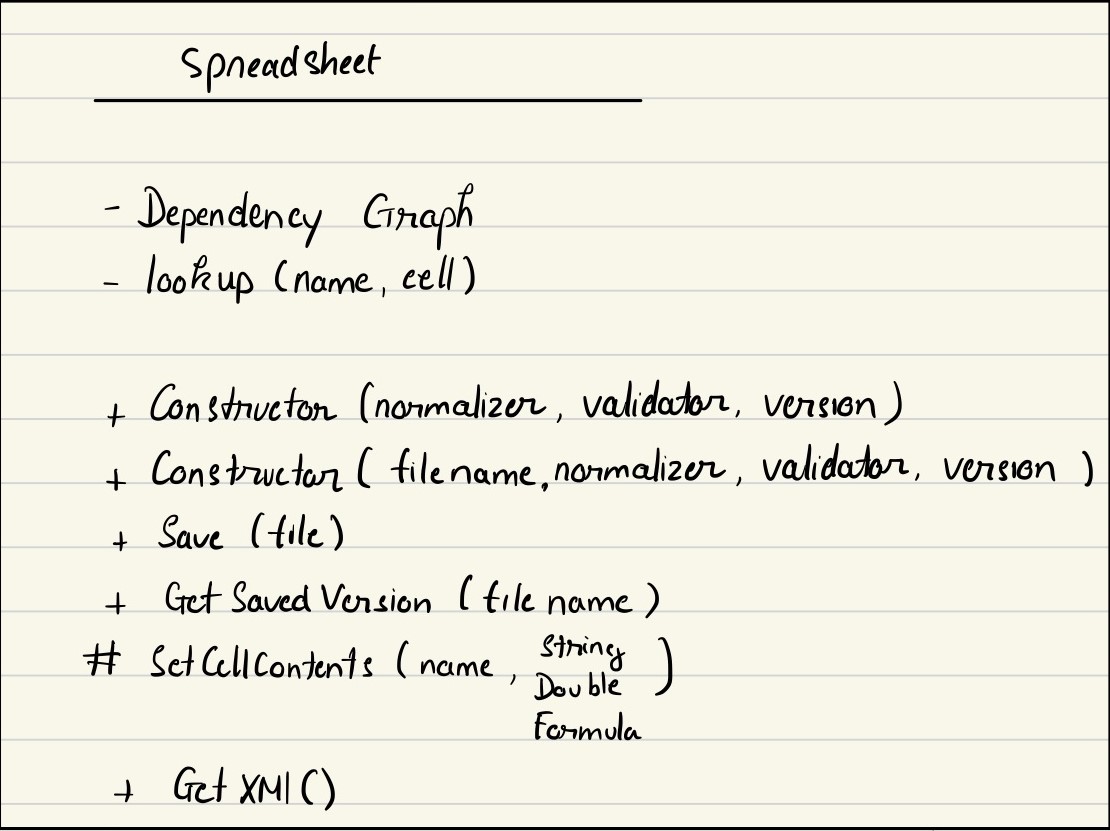 Spreadsheet
- Dependency Graph
- lookup (name, cell)
+ Constructor (normalizer, validator, version)
+ Constructor ( filename, normalizer, validator, version )
+ Save (file)
+ Get Saved Version (file name)
# SetCellContents (name, String
Double
Formula)
+ Get XMl ()